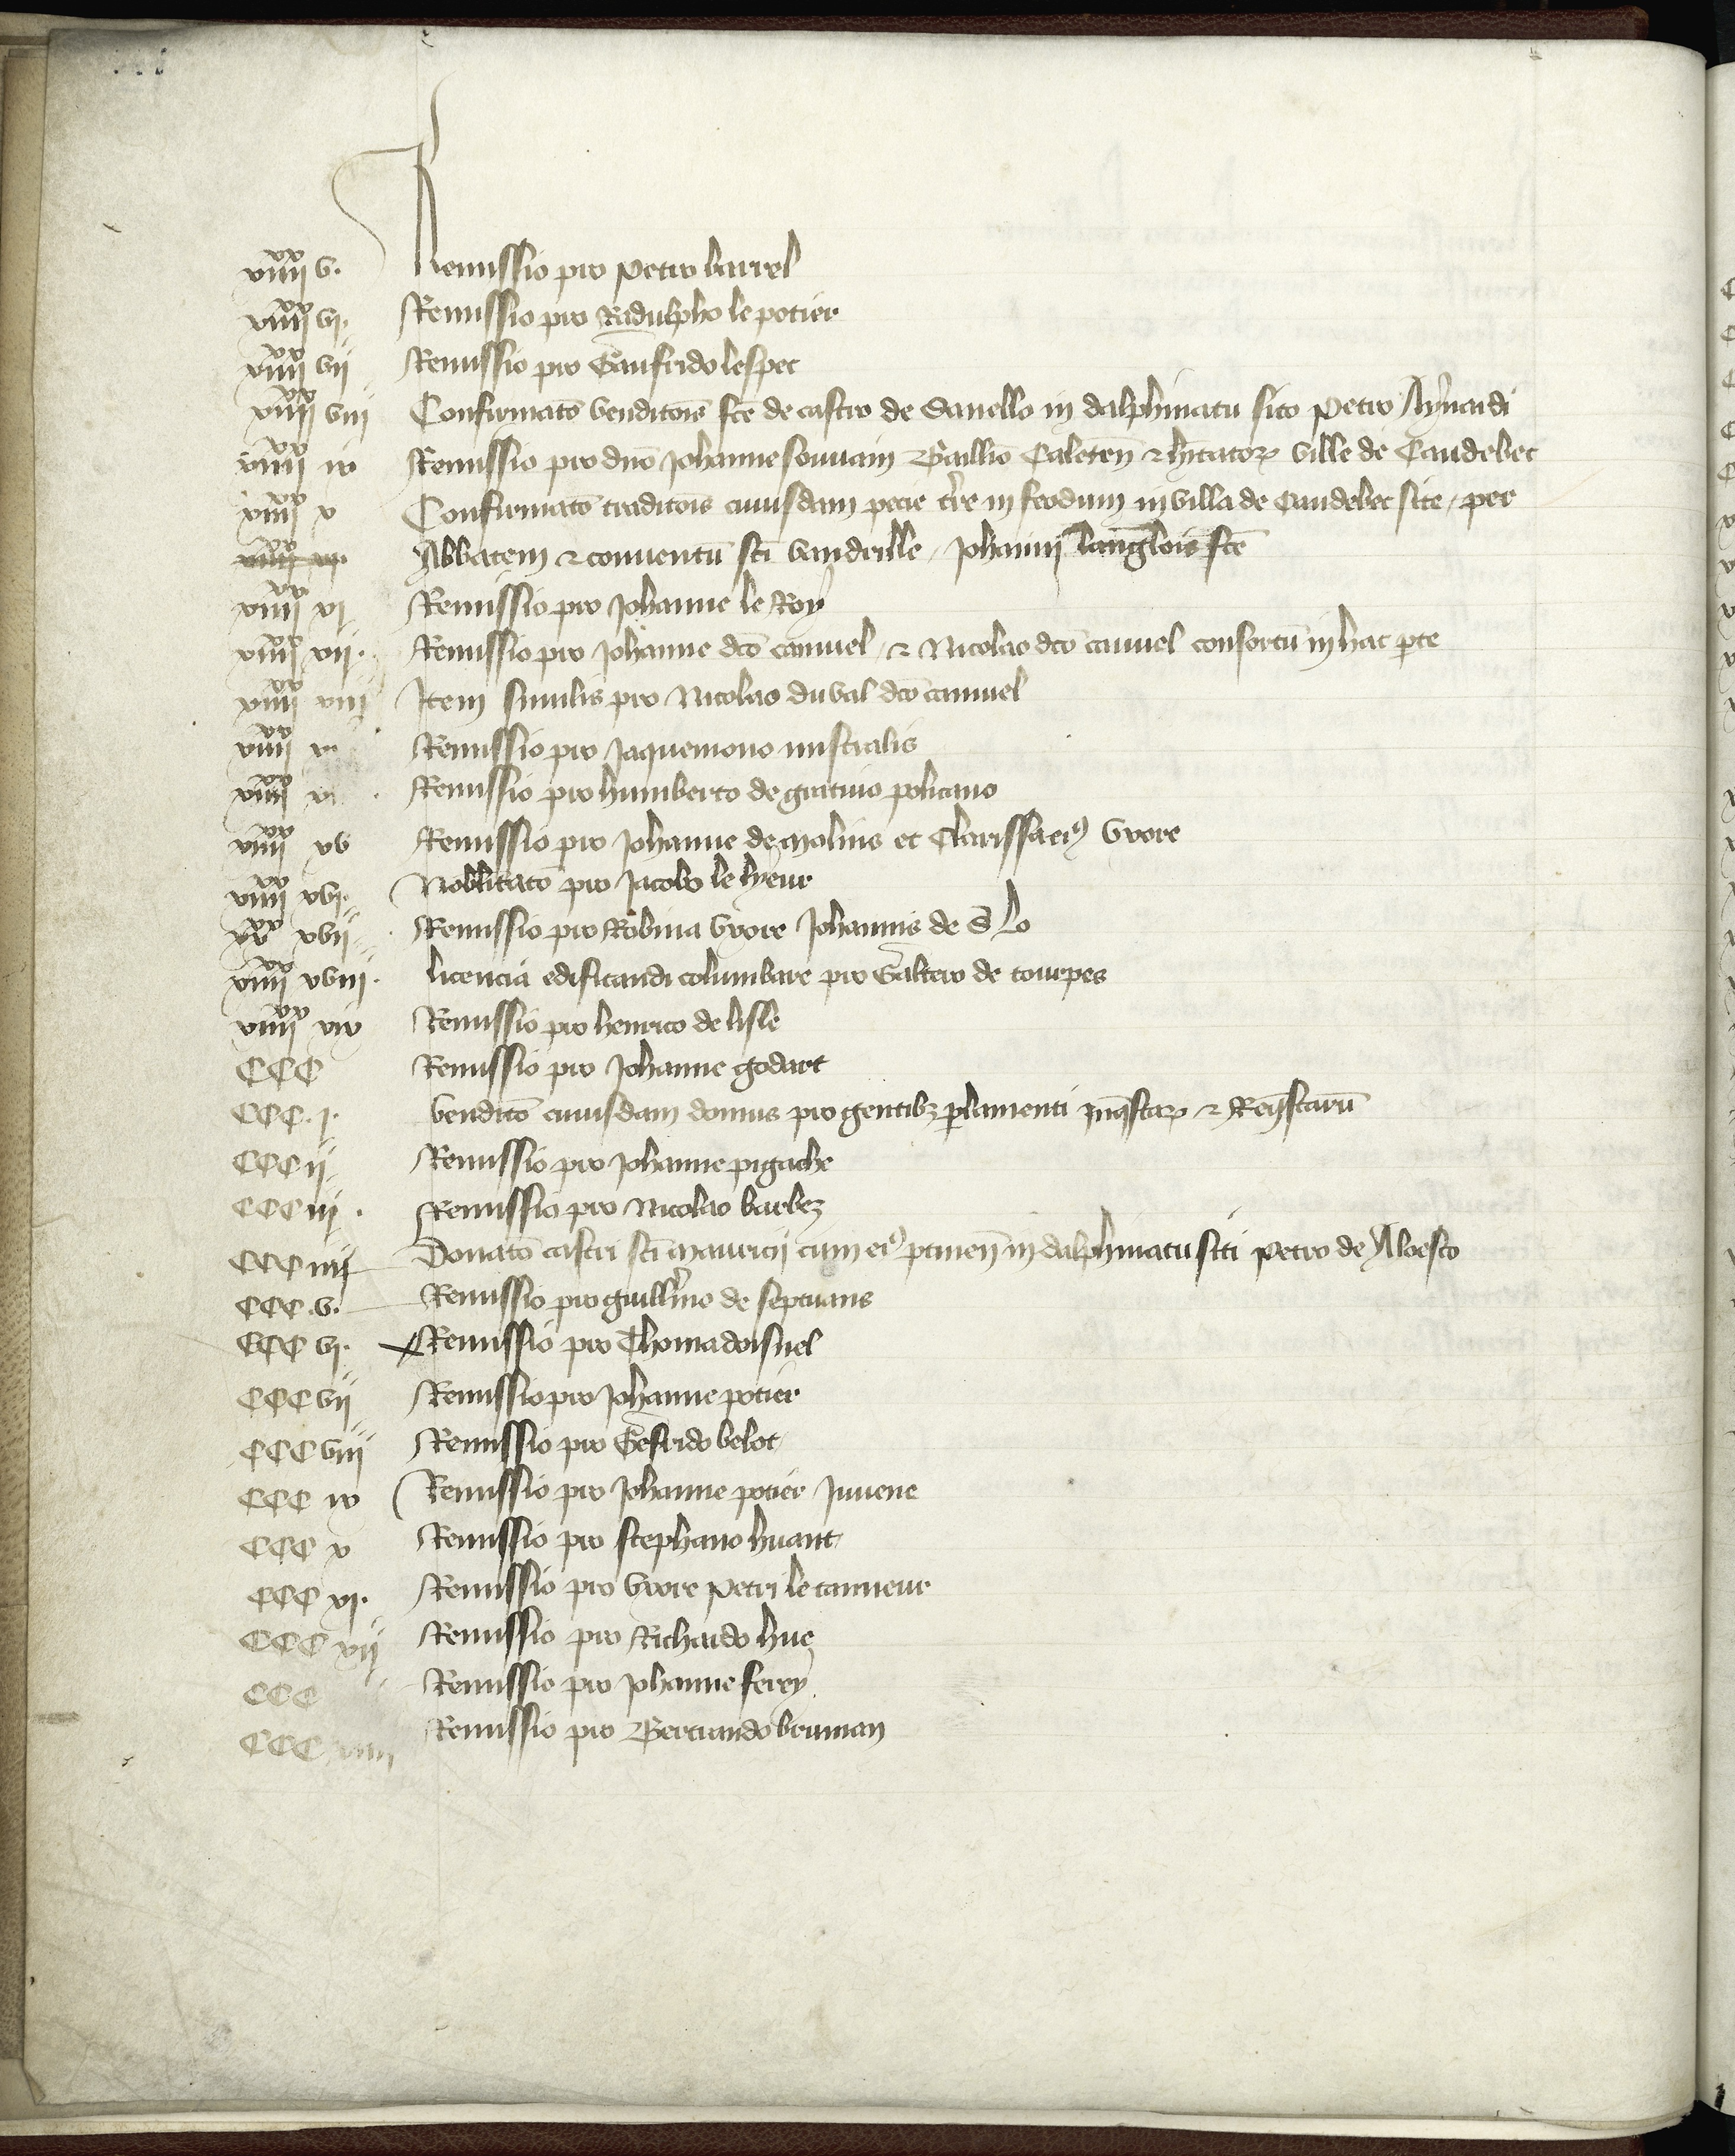 xiiii xx v. Remissio pro Petro barrel
xiiii xx vi. Remissio pro Radulpho le potier
xiiii xx vii Remissio pro Gaufrido lespec
xiiii xx viii Confirmato venditois fce de castro de Sanello in dalphinatu sito Petro Aynardi
xiiii xx ix Remissio pro dno Johanne sonnain Baillio Caleten & hitator ville de Caudebec
xiiii xx x Confirmato traditois cuiusdam pecie tre in feodum in villa de Caudebec site, per
Abbatem & conventu sci Vandrille, Johanni langlois fce
xiiii xx xi Remissio pro Johanne le Roy
xiiii xx xii. Remissio pro Johanne dco canuel, & Nicolao dco canuel consortu in hac pte
xiiii xx xiii Item similis pro Nicolao du val dco canuel
xiiii xx Remissio pro Jaquemono mistralis
xiiii xx Remissio pro humberto de gratino policano
xiiii xx xv Remissio pro Johanne de molins et Clarissa eius uxore
xiiii xx xvi. Nobilitato pro Jacobo le lyeur
xx xvii Remissio pro Robina uxore Johannis de S Lo
xiiii xx xviii. licencia edificandi columbare pro Galtero de tourpes
xiiii xx xix Remissio pro henrico de lisle
CCC Remissio pro Johanne godart
CCC. i. vendito cuiusdam domus pro gentibz plamenti inqstar & Reqstaru
CCC ii Remissio pro Johanne pigache
CCC iii. Remissio pro Nicolao barbez
CCC iiii Donato castri sci mauricii cum eius ptinen in dalphinatu siti Petro de Alvesco
CCC .v. Remissio pro guillmo de septvans
CCC vi. Remissio pro Thoma doisnel
CCC vii Remissio pro Johanne potier
CCC viii Remissio pro Gefrido belot
CCC ix Remissio pro Johanne potier Juvene
CCC x Remissio pro stephano huant
CCC xi. Remissio pro uxore Petri le tanneur
CCC xii Remissio pro Richardo hue
CCC Remissio pro Johanne ferey
CCC xiiii Remissio pro Bertrando bruman